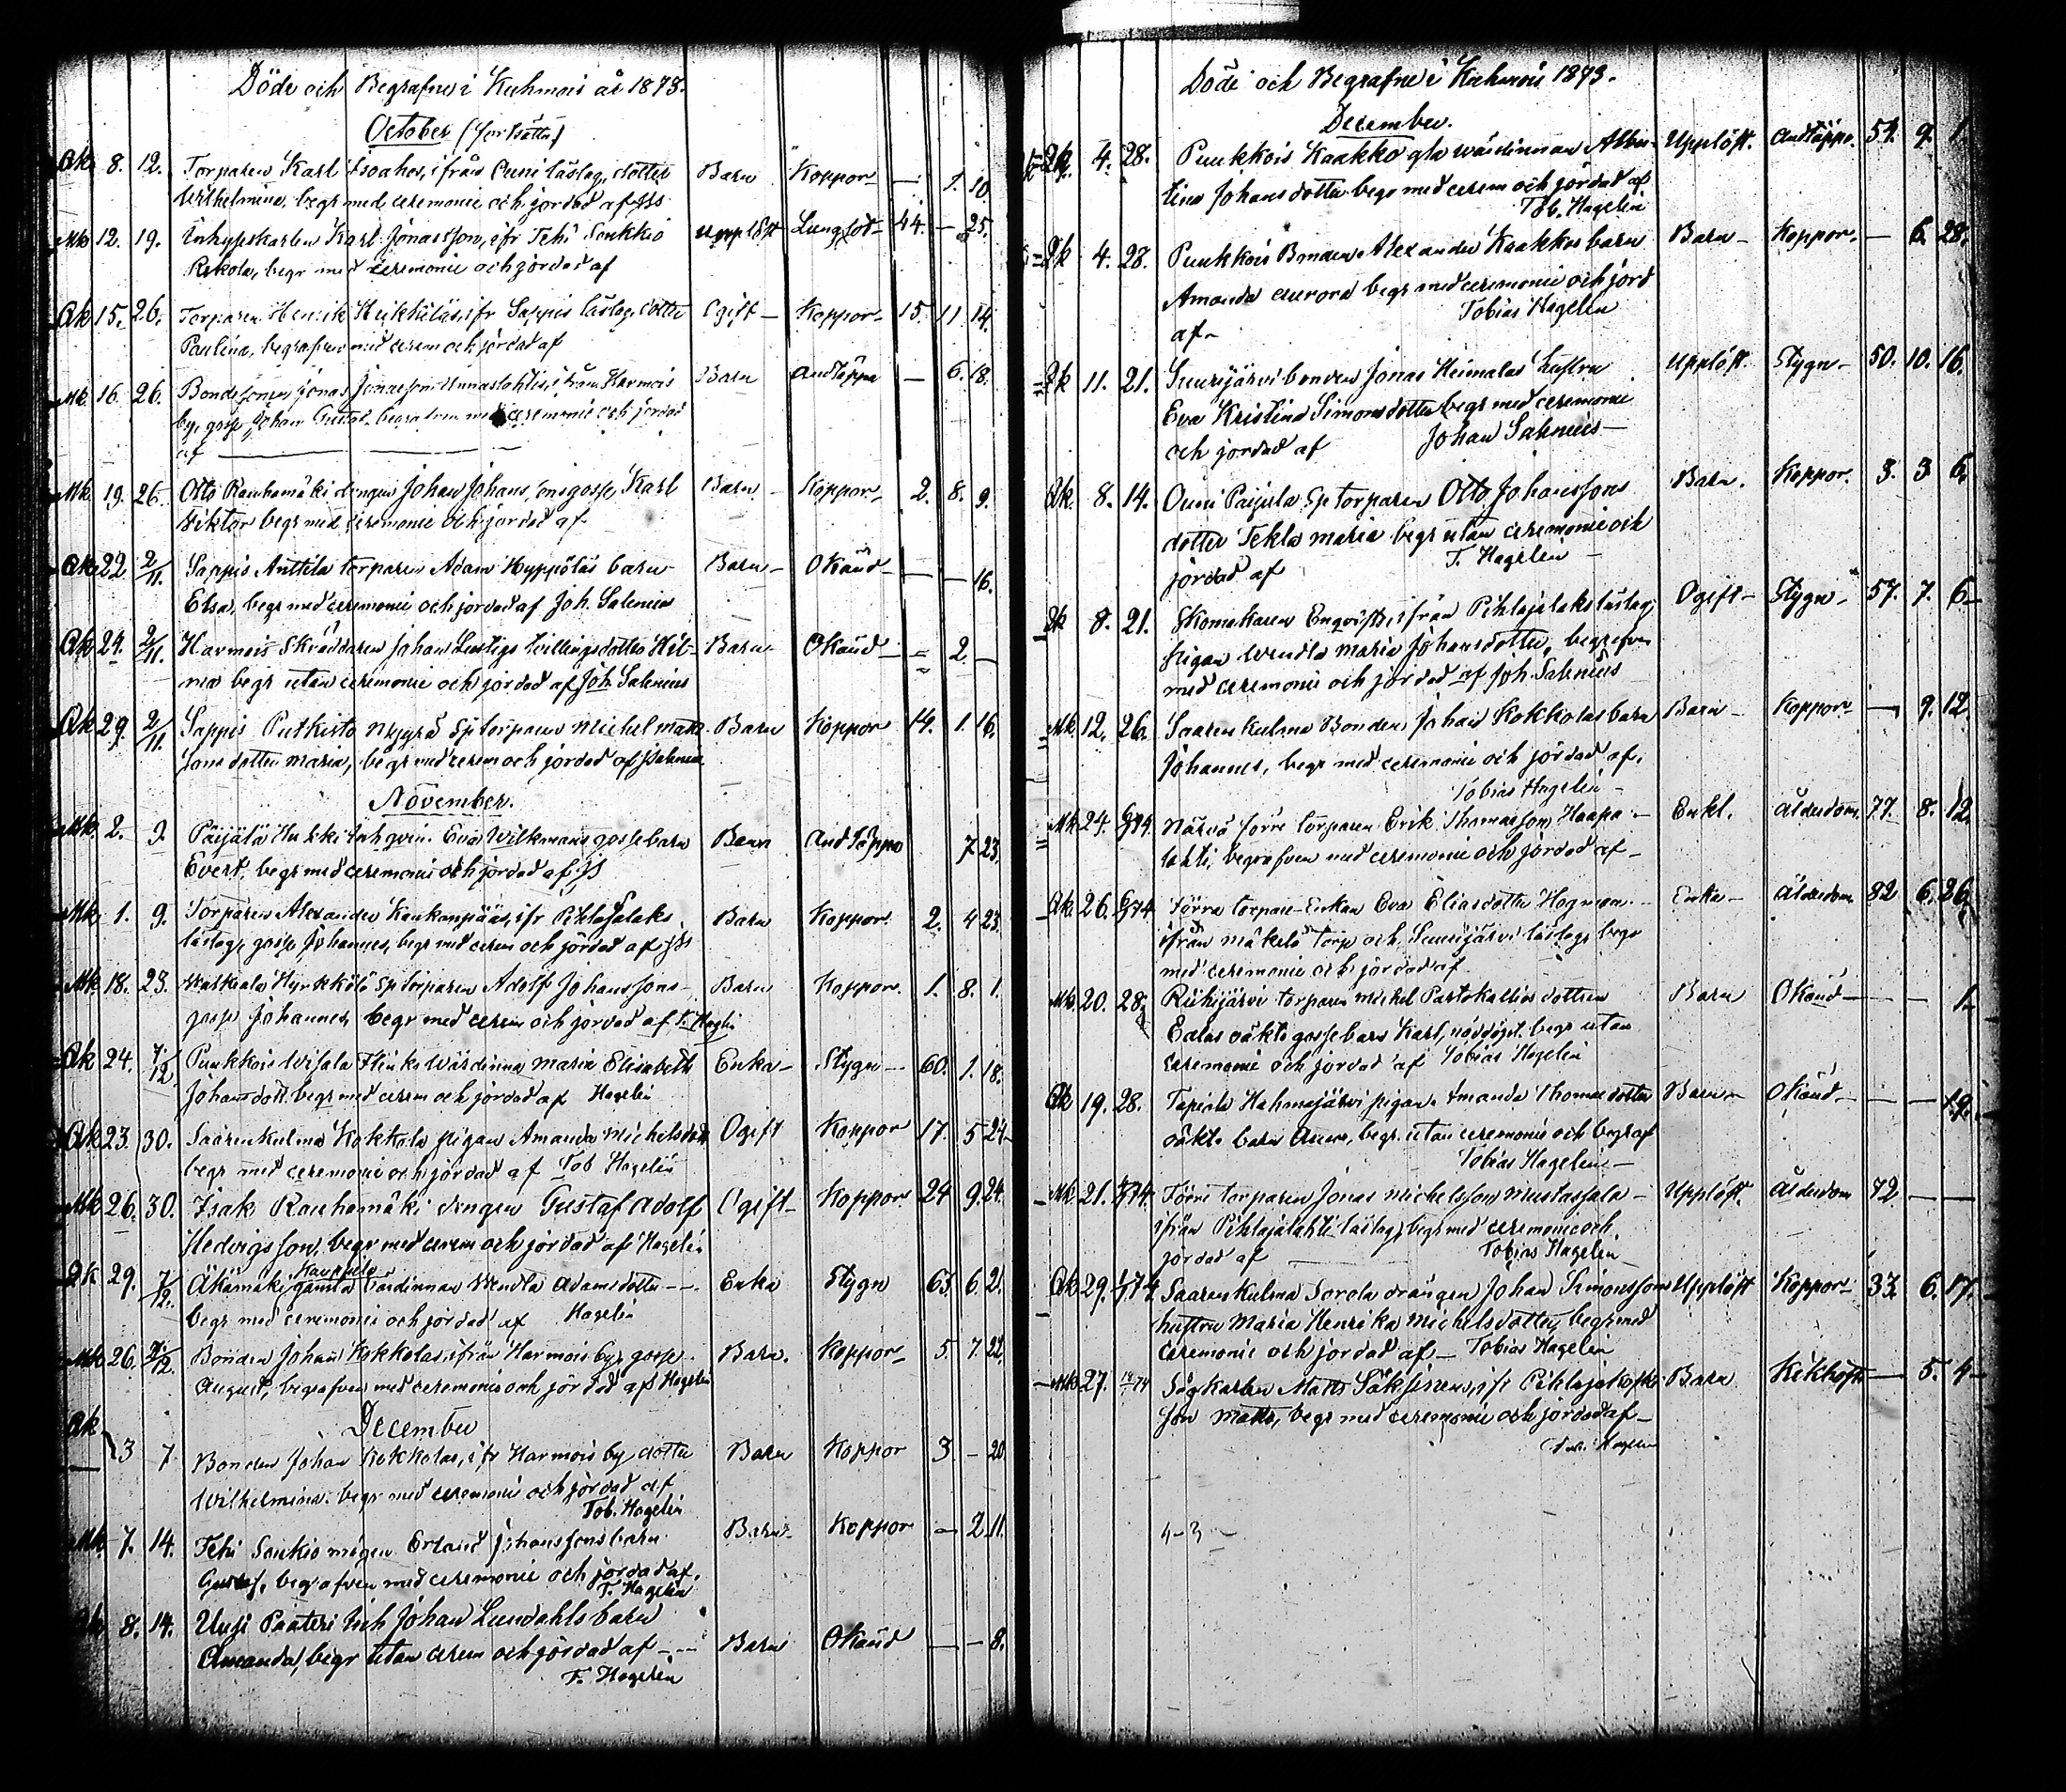 Döde och Begrafne i Kuhmois år 1873.
October (fortsättn.)
Qk. 8. 12. Torparen Karl Isoahos, ifrån Ouni läslag, dotter Barn Koppor — 1. 10.
Wilhelmina, begr med ceremonie och jordad af JSs
Mk. 12. 19. Inhyskarlen Karl Jonasson, ifr Tehi Soukkio upplöst Lungsot 44. — 25.
Rekola, begr med ceremonie och jordad af
Qk 15. 26. Torparen Henrik Heikkiläs, ifr Sappis läslag, dotter Ogift — Koppor 15. 11. 14.
Paulina, begrafven med cerem och jordad af
Mk. 16. 26. Bondesonen Jonas Jonasson Unnaslahtis, ifrån Harmois Barn Andtäppa — 6. 18.
by, gosse Johan Gustaf, begrafven med ceremonie och jordad
af
Mk. 19. 26. Otto Rauhamäki drengen Johan Johanssons gosse Karl Barn Koppor 2. 8. 9.
Viktor begr med ceremonie och jordad af
Qk 22 2/11. Sappis Anttila torparen Adam Hyppöläs barn Barn Okänd — — 16.
Elsa, begr med ceremonie och jordad af Joh. Salenius
Qk 24. 2/11. Harmois Skräddaren Johan Lustigs tvillingsdotter Hil- Barn Okänd — 2. —
ma begr utan ceremonie och jordad af Joh. Salenius
Qk 29. 2/11. Sappis Putkisto Myyrä Sptorparen Michel Matts- Barn Koppor 14. 1. 16.
sons dotter Maria, begr med cerem och jordad af J Salenius
November.
Mk. 2. 9. Päijälä Hukki Inhqvin. Eva Wilkmans gossebarn Barn Andtäppa 7 23.
Evert, begr med ceremonie och jordad af JS
Mk. 1. 9. Torparen Alexander Koukanpääs, ifr Pihlajalaks Barn Koppor 2. 4 23.
läslag, gosse Johannes, begr med cerem och jordad af JSs
Mk. 18. 23. Hyrkkölä Sptorparen Adolf Johanssons Barn Koppor. 1. 8. 1.
gosse Johannes begr med cerem och jordad af T. Hagelin
Qk 24. 7/12. Puukkois Wisala Flinks Wärdinna Maria Elisabeth Enka — Stygn — 60. 1. 18.
Johansdott. begr med cerem och jordad af Hagelin
Qk 23 30. Saarenkulma Kokkola pigan Amanda Michelsdott Ogift Koppor 17. 5 24
begr med ceremonie och jordad af Tob Hagelin
Mk 26. 30. Isak Rauhamäki drengen Gustaf Adolf Ogift Koppor 24 9 24.
Hedvigsson, begr med cerem och jordad af Hagelin
Qk 29. 7/12. Äkämäki gamla värdinnan Wendla Adamsdotter — Enka Stygn 63. 6. 2.
begr med ceremonie och jordad af Hagelin
Mk 26. 7/12. Bonden Johan Kokkolas, ifrån Harmois by, gosse Barn. Koppor 5. 7. 22.
August, begrafven med ceremonie och jordad af Hagelin
December
Qk 3 7 Bonden Johan Kokkolas, ifr Harmois by dotter Barn Koppor 3. — 20
Wilhelmina. begr med ceremonie och jordad af
Tob. Hagelin
Mk. 7. 14. Tehi Soukio mågen Erland Johanssons barn Barn Koppor — 2 11.
Gustaf, begrafven med ceremonie och jordad af.
T. Hagelin
Qk 8. 14. Uusi Paateri Inh Johan Lundahls barn Barn Okänd — — 8.
Amanda, begr utan cerem och jordad af
T. Hagelin
Döde och Begrafne i Kuhmois 1873.
December.
Qk. 4. 28. Puukkois Kaakko gla wärdinnan Alber- Upplöst. Andtäppa. 54. 9. 1.
tina Johansdotter begr med cerem och jordad af
Tob. Hagelin
Qk 4. 28. Puukkois Bonden Alexander Kaakkos barn Barn — Koppor. — 6. 28.
Amanda Aurora begr med ceremonie och jord
af Tobias Hagelin
Qk 11. 21. Suurijärvi bonden Jonas Heimalas hustru Upplöst. Stygn — 50. 10. 16.
Eva Kristina Simonsdotter begr med ceremonie
och jordad af Johan Salenius
Qk. 8. 14. Ouni Paijula Sptorparen Otto Johanssons Barn. Koppor. 3. 3 6.
dotter Tekla Maria begr utan ceremonie och
jordad af T. Hagelin
Qk 8. 21. Skomakaren Enqvists, ifrån Pihlajalaks läslag, Ogift — Stygn — 57. 7. 6
pigan Wendla Maria Johansdotter, begrafven
med ceremonie och jordad af Joh. Salenius
Mk. 12. 26. Saarenkulma Bonden Johan Kokkolas barn Barn — Koppor — 9. 12
Johannes, begr med ceremonie och jordad af.
Tobias Hagelin
Mk. 24. 74. Närvä förre torparen Erik Thomasson Haapa- Enkl. Ålderdom. 77. 8. 12.
lahti, begrafven med ceremonie och jordad af
Qk. 26. 74 Förre torpare-Enkan Eva Eliasdotter Hagman Enka — Ålderdom 82 6. 26.
ifrån Mäkelä torp och Suurijärvi läslag, begr
med ceremonie och jordad af
Mk. 20. 28. Riihijärvi torparen Michel Partokallios dottren Barn Okänd — — 1.
Edlas oäkta gossebarn Karl, nöddöpt. begr utan
ceremonie och jordad af Tobias Hagelin
Qk 19. 28. Tapiola Hahmajärvi pigan Amanda Thomasdotter Barn Okänd — —
oäkta barn Anna, begr utan ceremonie och begraf
Tobias Hagelin
Mk. 21. 74. Förre torparen Jonas Michelsson Mustassala Upplöst. Ålderdom 72 — —
ifrån Pihlajalahti läslag, begr med ceremonie och
jordad af Tobias Hagelin
Qk 29. 74. Saarenkulma Sorola drängen Johan Simonsson Upplöst Koppor 33. 6. 17.
hustru Maria Henrika Michelsdotter, begr med
ceremonie och jordad af — Tobias Hagelin
Mk 27. 74 Sågkarlen Matts Säkkinens, ifr Pihlajakoski Barn Kikhosta — 5. 4
son Matts, begr med ceremonie och jordad af
Tob. Hagelin
4-3